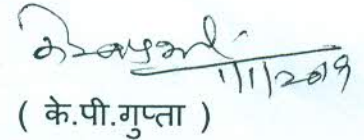 1/1/2019
( के.पी.गुप्ता )